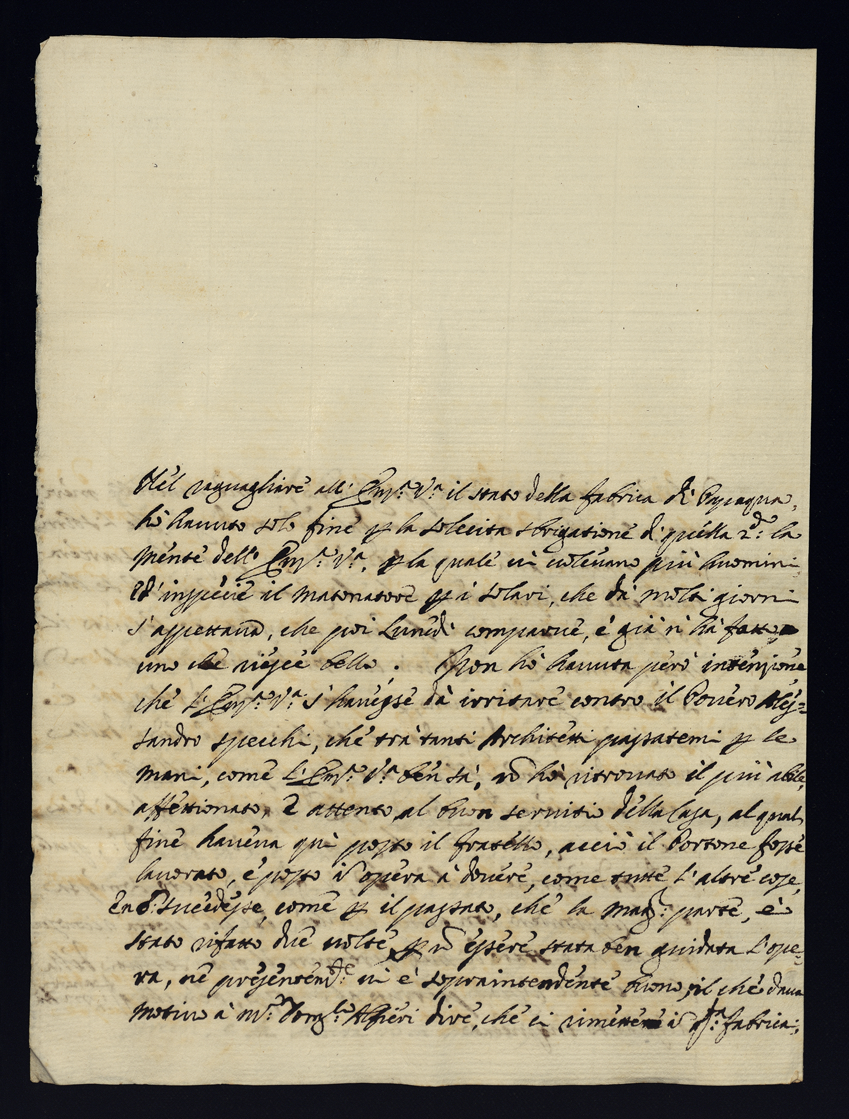 Nel raguagliare all' Em.ª V.ª il stato della fabrica di
hò hauuto solo fine p la sollecita sbrigatione di quella 2.dª: la
mente dell' Em.ª V.ª, p la quale ui uoleuano più huomini
ed' inspecie il Matonatore p i solari, che da' molti giorni
s' aspettaua, che poi Lunedì comparue, e già n' hà fatto
uno che riesce bello. Non hò hauuta però intenzione
che l' Em.ª V.ª s' hauesse dà irritare contro il Pouero Ales=
sandro specchi, che trà tanti Architetti passatemi p le
mani, come l' Em.ª V.ª ben sà, nō hò ritrouato il più abile,
affettionato, e attento al buon seruitio della Casa, al qual
fine haueua quì posto il fratello, acciò il Portone fosse
lauorato, e posto ī opera à douere, come tutte l' altre cose,
En ō: succedesse, come p il passato, che la mag.r: parte, è
stato rifatto due uolte, p nō essere stata ben guidata l' ope=
ra, ne presentem.te ui è sopraintendente buono, il che daua
motiuo à m.r Alfieri dire, che ci rimette ī q.sta: fabrica;